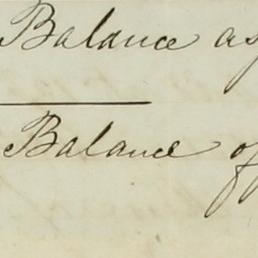 Balance
Balance of